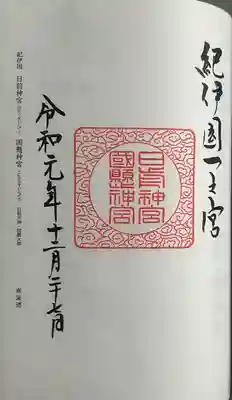 紀伊國一之宮
日前神宮
國懸神宮
令和元年十二月二十七日
紀伊国 日前神宮 国懸神宮